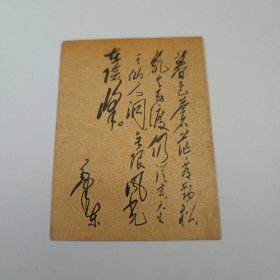 暮色苍茫看劲松
乱云飞渡仍从容天生
一个仙人洞无限风光
在险峰。
毛泽东